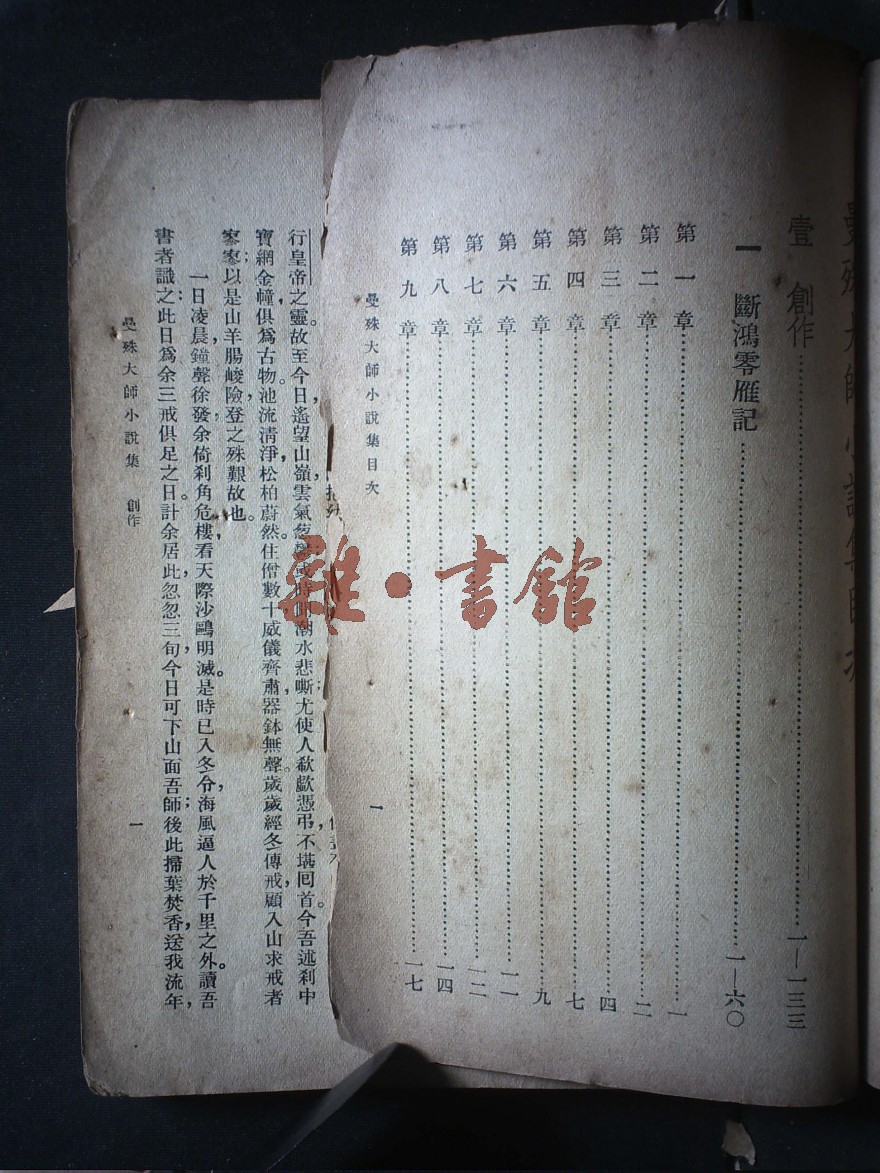 曼殊大師小說集目次
壹 創作……一—一三三
一 斷鴻零雁記……一—六〇
第一章……一
第二章……二
第三章……四
第四章……七
第五章……九
第六章……一一
第七章……一二
第八章……一四
第九章……一七
曼殊大師小說集目次 一
行皇帝之靈。故至今日，遙望山嶺雲氣葱鬱；或時聞潮水悲嘶，尤使人欷歔憑弔，不堪回首。今吾述剎中
寶網金幢，俱爲古物。池流清淨，松柏蔚然。住僧數十，威儀齊肅，器鉢無聲。歲歲經冬傳戒，顧入山求戒者
寥寥；以是山羊腸峻險，登之殊艱故也。
一日凌晨，鐘聲徐發，余倚刹角危樓，看天際沙鷗明滅。是時已入冬令，海風逼人於千里之外。讀吾
書者識之：此日爲余三戒俱足之日。計余居此，忽忽三旬，今日可下山面吾師；後此掃葉焚香，送我流年，
曼殊大師小說集 創作 一
雜·書館